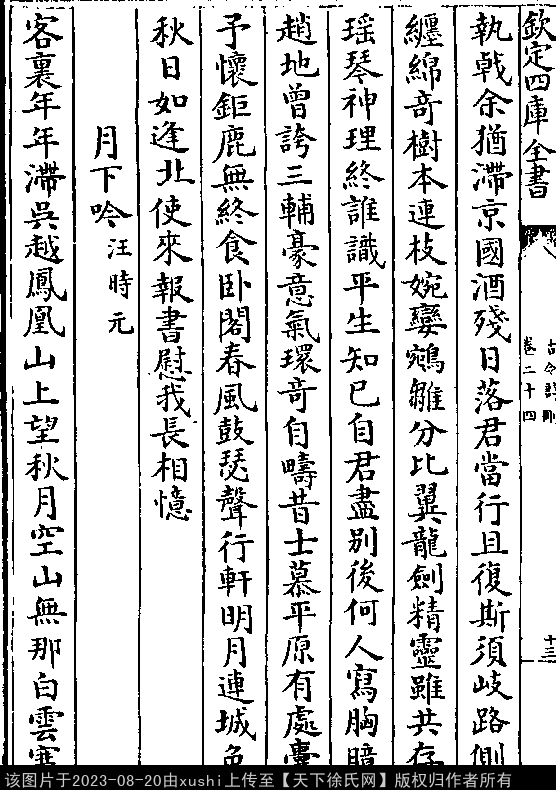 欽定四庫全書
古今詩刪
卷二十四
十三
執戟余猶滯京國酒殘日落君當行且復斯須岐路側
纏綿奇樹本連枝婉孌鵷雛分比翼龍劍精靈雖共存
瑶琴神理終誰識平生知已自君盡别後何人寫胸臆
趙地曾誇三輔豪意氣環奇自疇昔士慕平原有處囊
予懷鉅鹿無終食卧閣春風鼓瑟聲行軒明月連城色
秋日如逢北使來報書慰我長相憶
月下吟 汪時元
客裏年年滯吳越鳳凰山上望秋月空山無那白雲寒
该图片于2023-08-20由xushi上传至【天下徐氏网】版权归作者所有